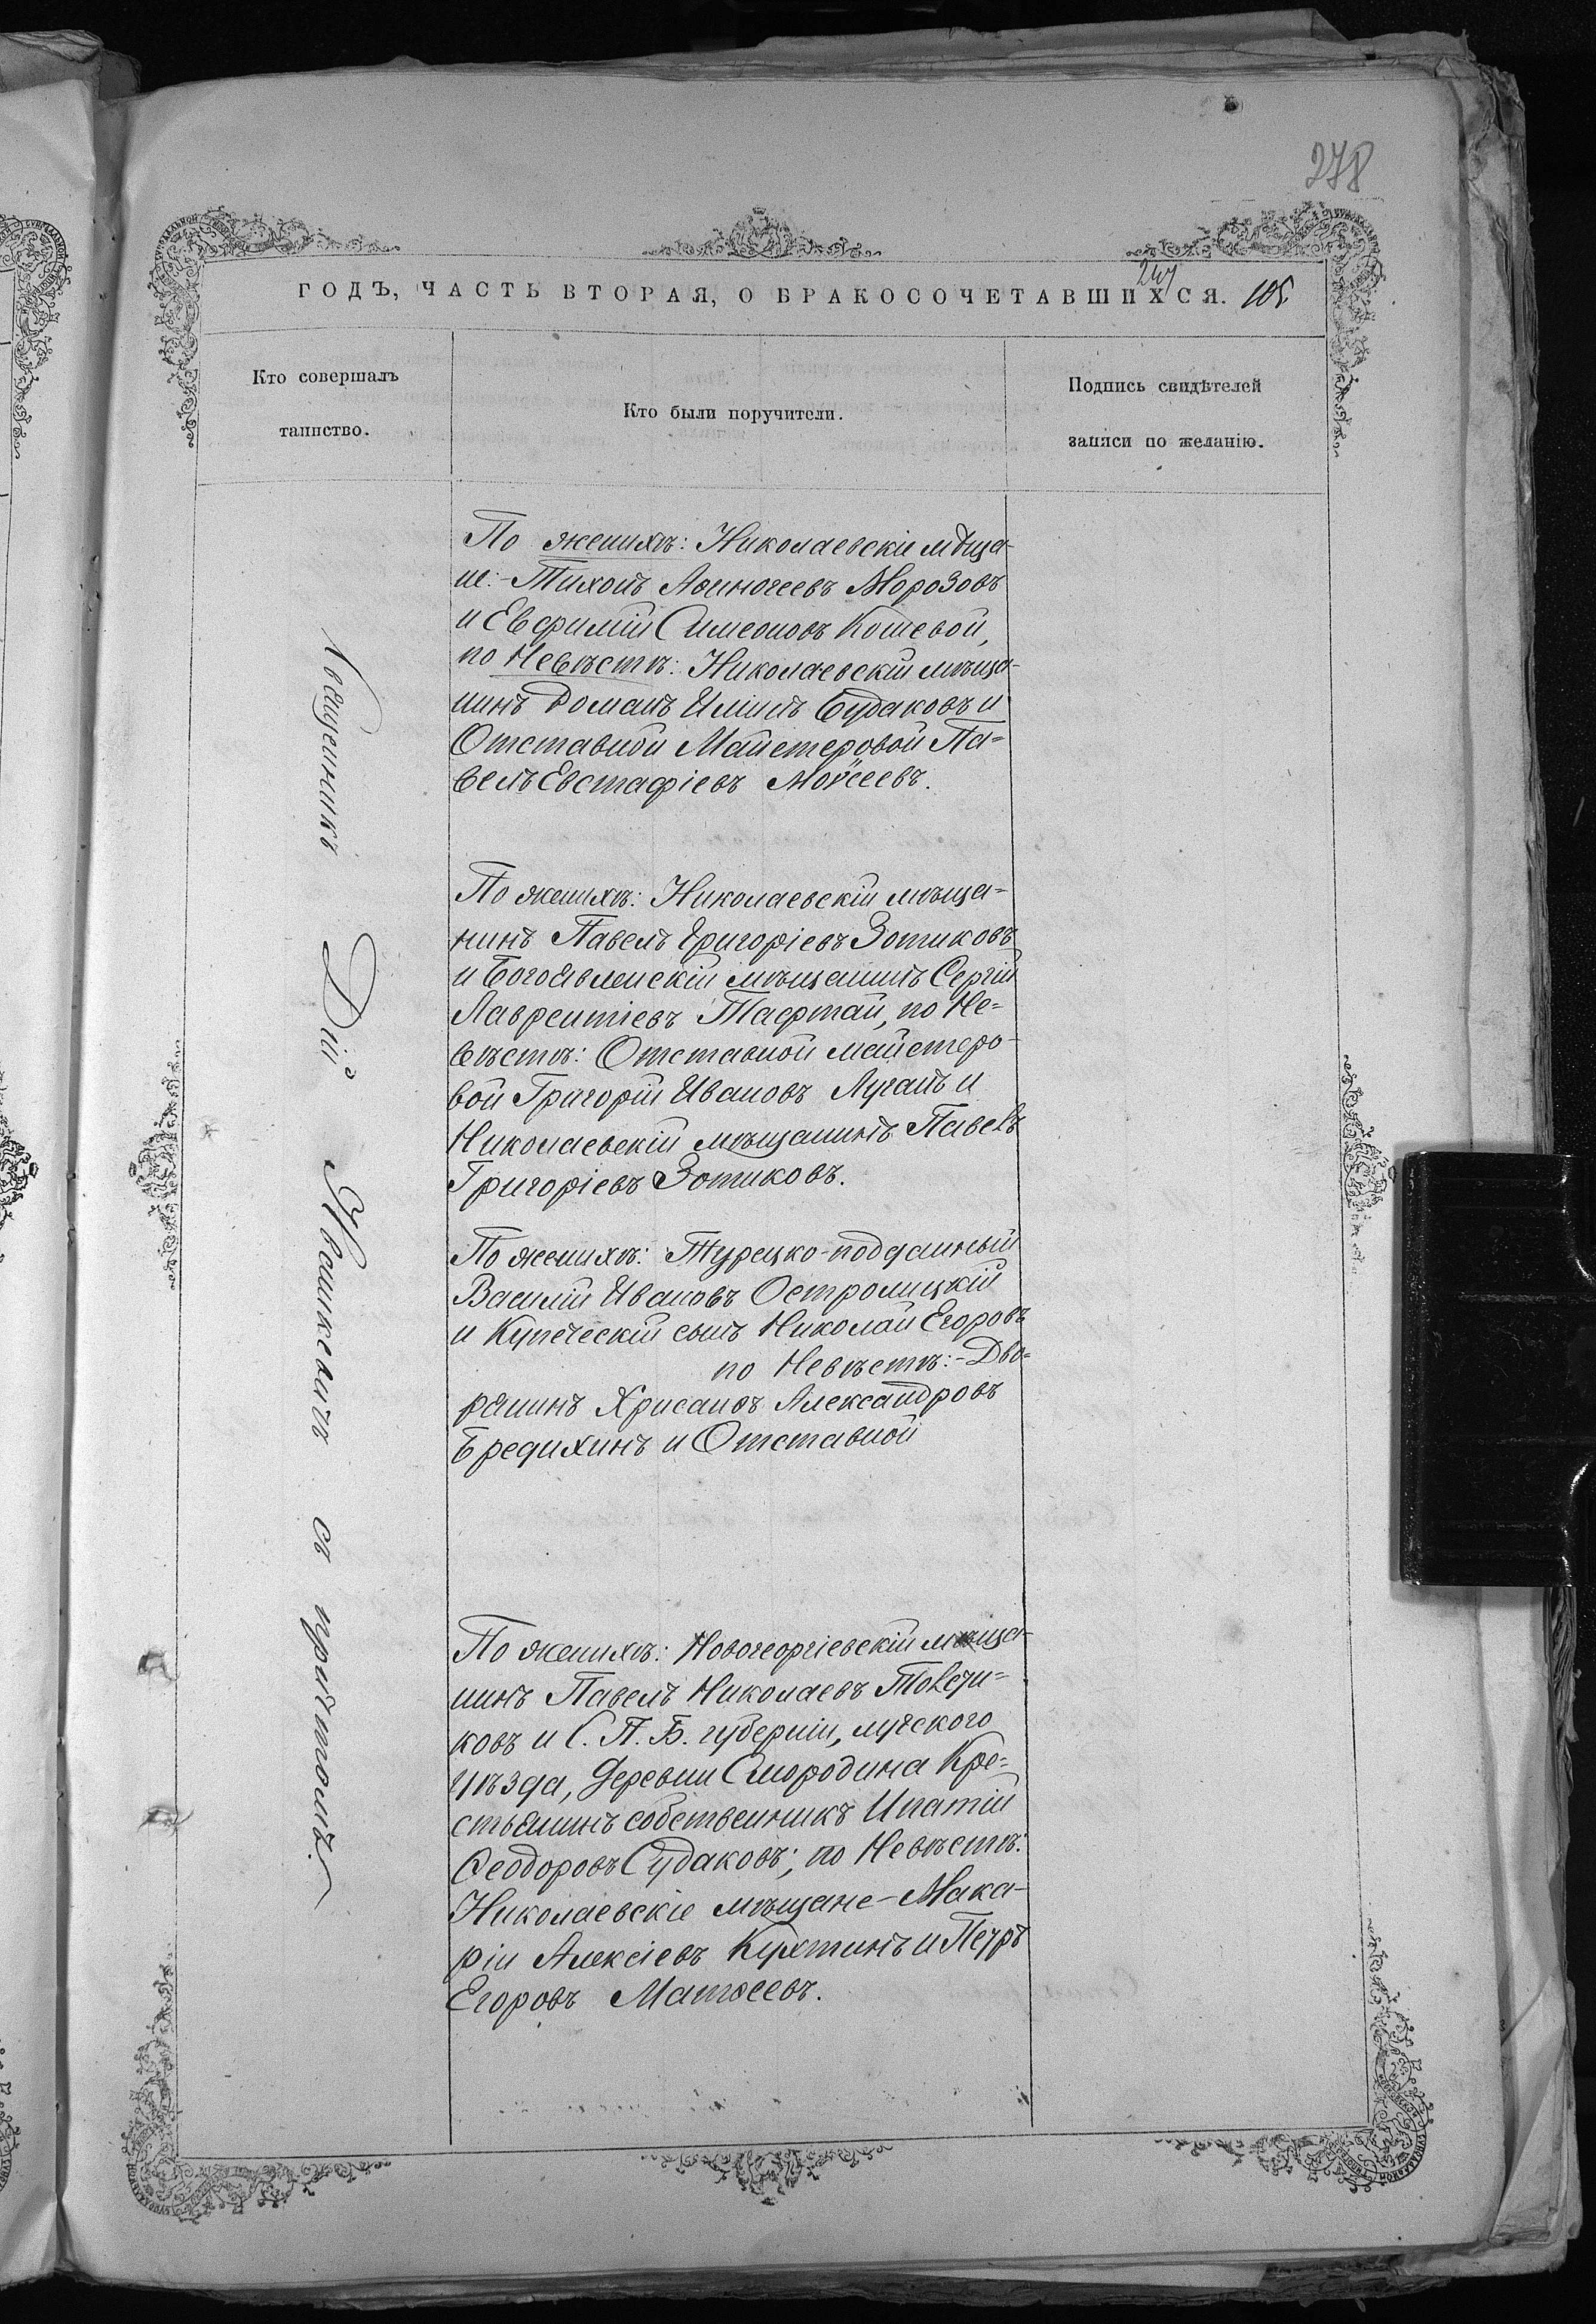 278
247
ГОДЪ, ЧАСТЬ ВТОРАЯ, О БРАКОСОЧЕТАВШИХСЯ. 105
Кто совершалъ
таинство.
Кто были поручители.
Подпись свидѣтелей
записи по желанію.
Священникъ Дій Ивашкевичъ съ причтомъ.
По женихѣ: Николаевскіе мѣща-
не: Тихонъ Аѳиногеевъ Морозовъ
и Евфимій Симеоновъ Кошевой,
по Невѣстѣ: Николаевскій мѣща-
нинъ Романъ Ильинъ Будаковъ и
Отставной Майстеровой Па-
велъ Евстафіевъ Моѵсеевъ.
По женихѣ: Николаевскій мѣща-
нинъ Павелъ Григоріевъ Зотиковъ
и Богоявленскій мѣщанинъ Сергій
Лаврентіевъ Тафтай, по Не-
вѣстѣ: Отставной майстеро-
вой Григорій Ивановъ Луганъ и
Николаевскій мѣщанинъ Павелъ
Григоріевъ Зотиковъ.
По женихѣ: Турецко-подданный
Василій Ивановъ Остролицкій
и Купеческій сынъ Николай Егоровъ
по Невѣстѣ:- Дво-
рянинъ Хрисанѳъ Александровъ
Бредихинъ и Отставной
По женихѣ: Новогеоргіевскій мѣща-
нинъ Павелъ Николаевъ
ковъ и С. П. Б. губерніи, лугского
уѣзда, деревни Смородина Кре-
стьянинъ собственникъ Ипатій
Ѳеодоровъ Судаковъ; по Невѣстѣ:
Николаевскіе мѣщане - Мака-
рій Алексіевъ Кухтинъ и Петръ
Егоровъ Матѳеевъ.